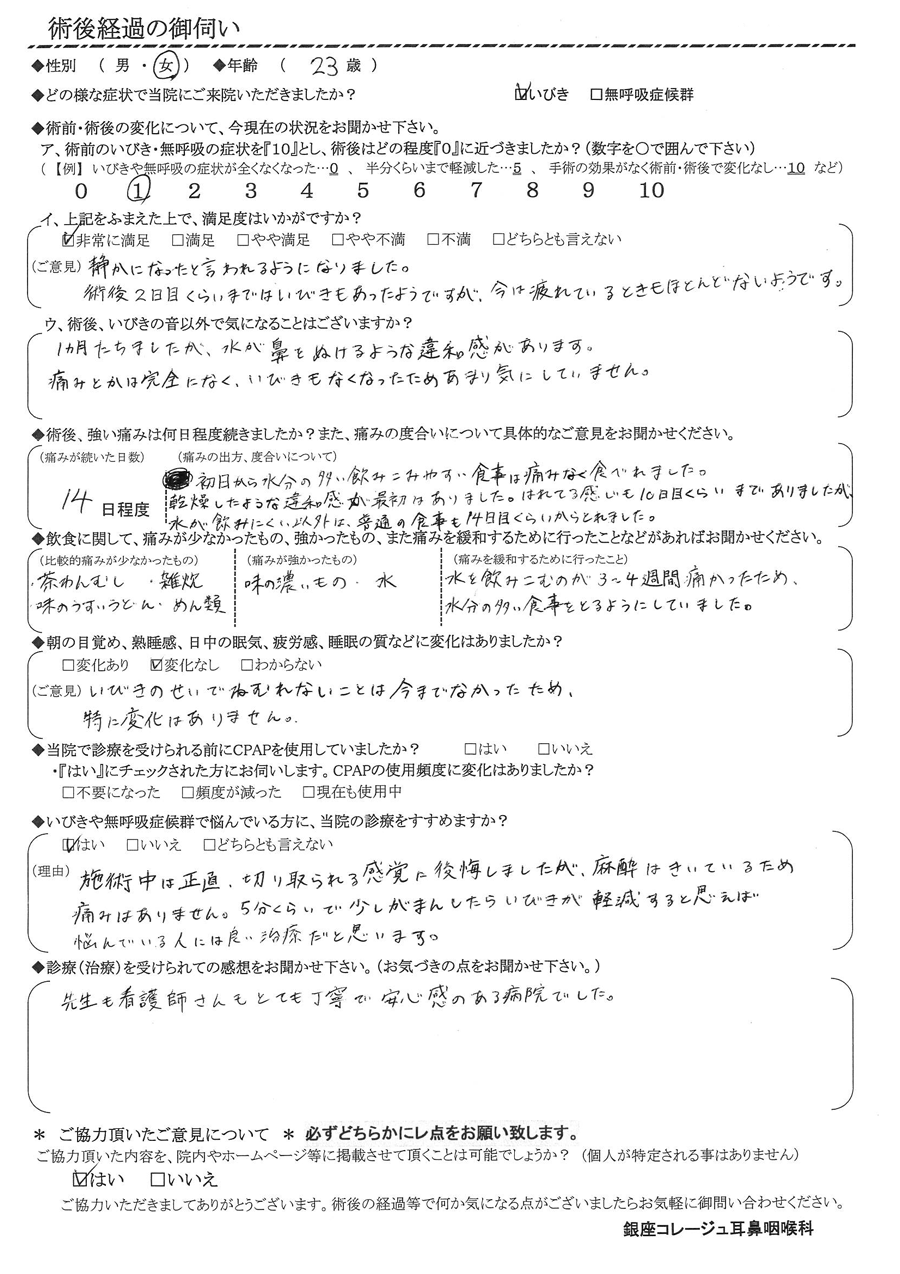 術後経過の御伺い
◆性別 ( 男 ・ 女 ) ◆年齢 ( 23 歳 )
◆どの様な症状で当院にご来院いただきましたか? ☑いびき □無呼吸症候群
◆術前・術後の変化について、今現在の状況をお聞かせ下さい。
ア、術前のいびき・無呼吸の症状を『10』とし、術後はどの程度『0』に近づきましたか?(数字を○で囲んで下さい)
(【例】 いびきや無呼吸の症状が全くなくなった…0 、 半分くらいまで軽減した…5 、 手術の効果がなく術前・術後で変化なし…10 など)
0 1 2 3 4 5 6 7 8 9 10
イ、上記をふまえた上で、満足度はいかがですか?
☑非常に満足 □満足 □やや満足 □やや不満 □不満 □どちらとも言えない
(ご意見) 静かになったと言われるようになりました。
術後2日目くらいまではいびきもあったようですが、今は疲れているときもほとんどないようです。
ウ、術後、いびきの音以外で気になることはございますか?
1カ月たちましたが、水が鼻をぬけるような違和感があります。
痛みとかは完全になく、いびきもなくなったためあまり気にしていません。
◆術後、強い痛みは何日程度続きましたか?また、痛みの度合いについて具体的なご意見をお聞かせください。
(痛みが続いた日数) (痛みの出方、度合いについて)
14 日程度
初日から水分の多い飲みこみやすい食事は痛みなく食べれました。
乾燥したような違和感が最初はありました。はれてる感じも10日目くらいまでありましたが、
水が飲みにくい以外は、普通の食事も14日目くらいからとれました。
◆飲食に関して、痛みが少なかったもの、強かったもの、また痛みを緩和するために行ったことなどがあればお聞かせください。
(比較的痛みが少なかったもの) (痛みが強かったもの) (痛みを緩和するために行ったこと)
・茶わんむし ・雑炊 味の濃いもの・ 水 水を飲みこむのが3〜4週間痛かったため、
味のうすいうどん・めん類 水分の多い食事をとるようにしていました。
◆朝の目覚め、熟睡感、日中の眠気、疲労感、睡眠の質などに変化はありましたか?
□変化あり ☑変化なし □わからない
(ご意見) いびきのせいでねむれないことは今までなかったため、
特に変化はありません。
◆当院で診療を受けられる前にCPAPを使用していましたか? □はい □いいえ
・『はい』にチェックされた方にお伺いします。CPAPの使用頻度に変化はありましたか?
□不要になった □頻度が減った □現在も使用中
◆いびきや無呼吸症候群で悩んでいる方に、当院の診療をすすめますか?
☑はい □いいえ □どちらとも言えない
(理由) 施術中は正直、切り取られる感覚に後悔しましたが、麻酔はきいているため
痛みはありません。5分くらいで少しがまんしたらいびきが軽減すると思えば
悩んでいる人には良い治療だと思います。
◆診療(治療)を受けられての感想をお聞かせ下さい。(お気づきの点をお聞かせ下さい。)
先生も看護師さんもとても丁寧で安心感のある病院でした。
＊ ご協力頂いたご意見について ＊ 必ずどちらかにレ点をお願い致します。
ご協力頂いた内容を、院内やホームページ等に掲載させて頂くことは可能でしょうか? (個人が特定される事はありません)
☑はい □いいえ
ご協力いただきましてありがとうございます。術後の経過等で何か気になる点がございましたらお気軽に御問い合わせください。
銀座コレージュ耳鼻咽喉科